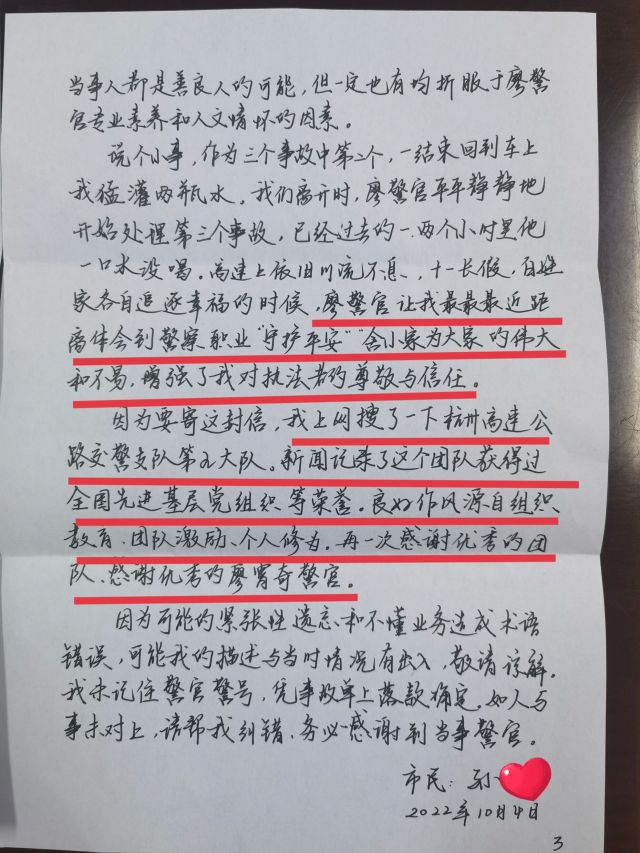 当事人都是善良人的可能，但一定也有均折服于廖警
官专业素养和人文情怀的因素。
说个小事，作为三个事故中第二个，一结束回到车上
我猛灌两瓶水。我们离开时，廖警官平平静静地
开始处理第三个事故，已经过去的一、两个小时里他
一口水没喝。高速上依旧川流不息，十一长假，百姓
家各自追逐幸福的时候，廖警官让我最最最近距
离体会到警察职业“守护平安”“舍小家为大家”的伟大
和不易，增强了我对执法者的尊敬与信任。
因为要寄这封信，我上网搜了一下杭州高速公
路交警支队第九大队。新闻记录了这个团队获得过
全国先进基层党组织等荣誉。良好作风源自组织
教育、团队激励、个人修为。再一次感谢优秀的团
队、感谢优秀的廖胃奇警官。
因为可能的紧张性遗忘和不懂业务造成术语
错误，可能我的描述与当时情况有出入，敬请谅解。
我未记住警官警号，凭事故单上落款确定。如人与
事未对上，请帮我纠错、务必感谢到当事警官。
市民：孙
2022年10月4日
3